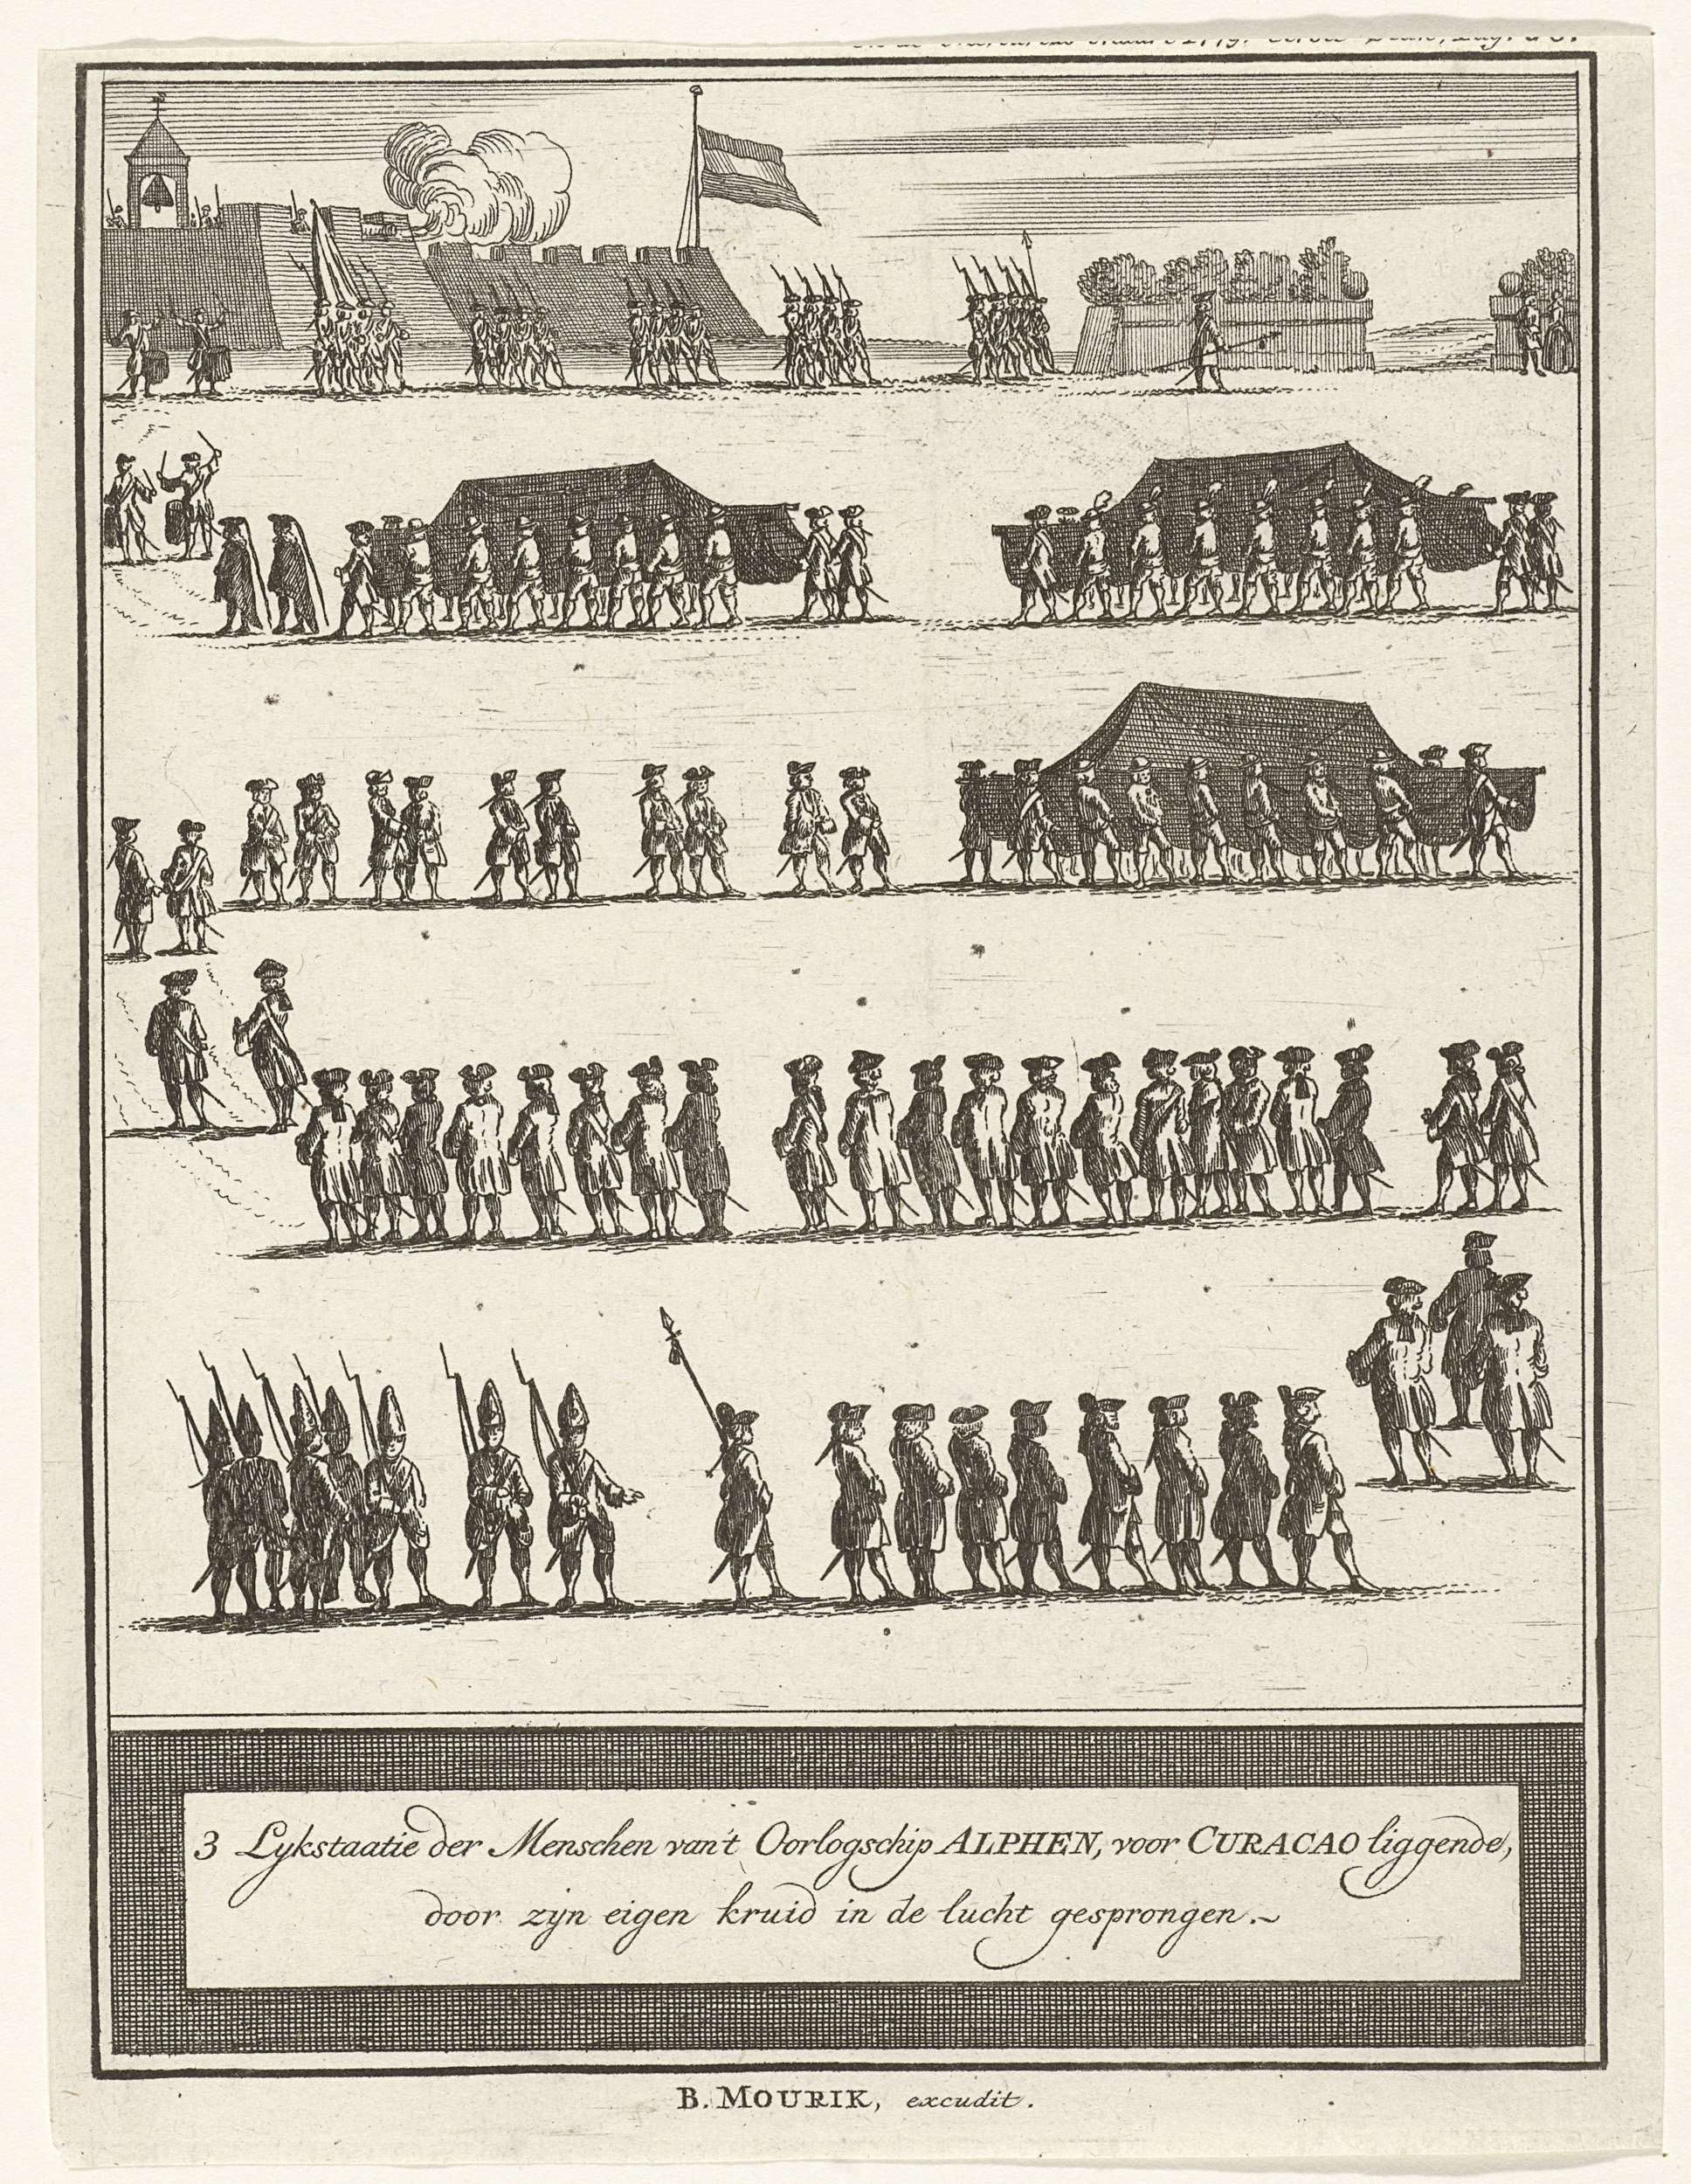 3 Lykstaatie der Menschen van't Oorlogschip ALPHEN, voor CURACAO liggende,
door zyn eigen kruid in de lucht gesprongen.~
B. MOURIK, excudit.